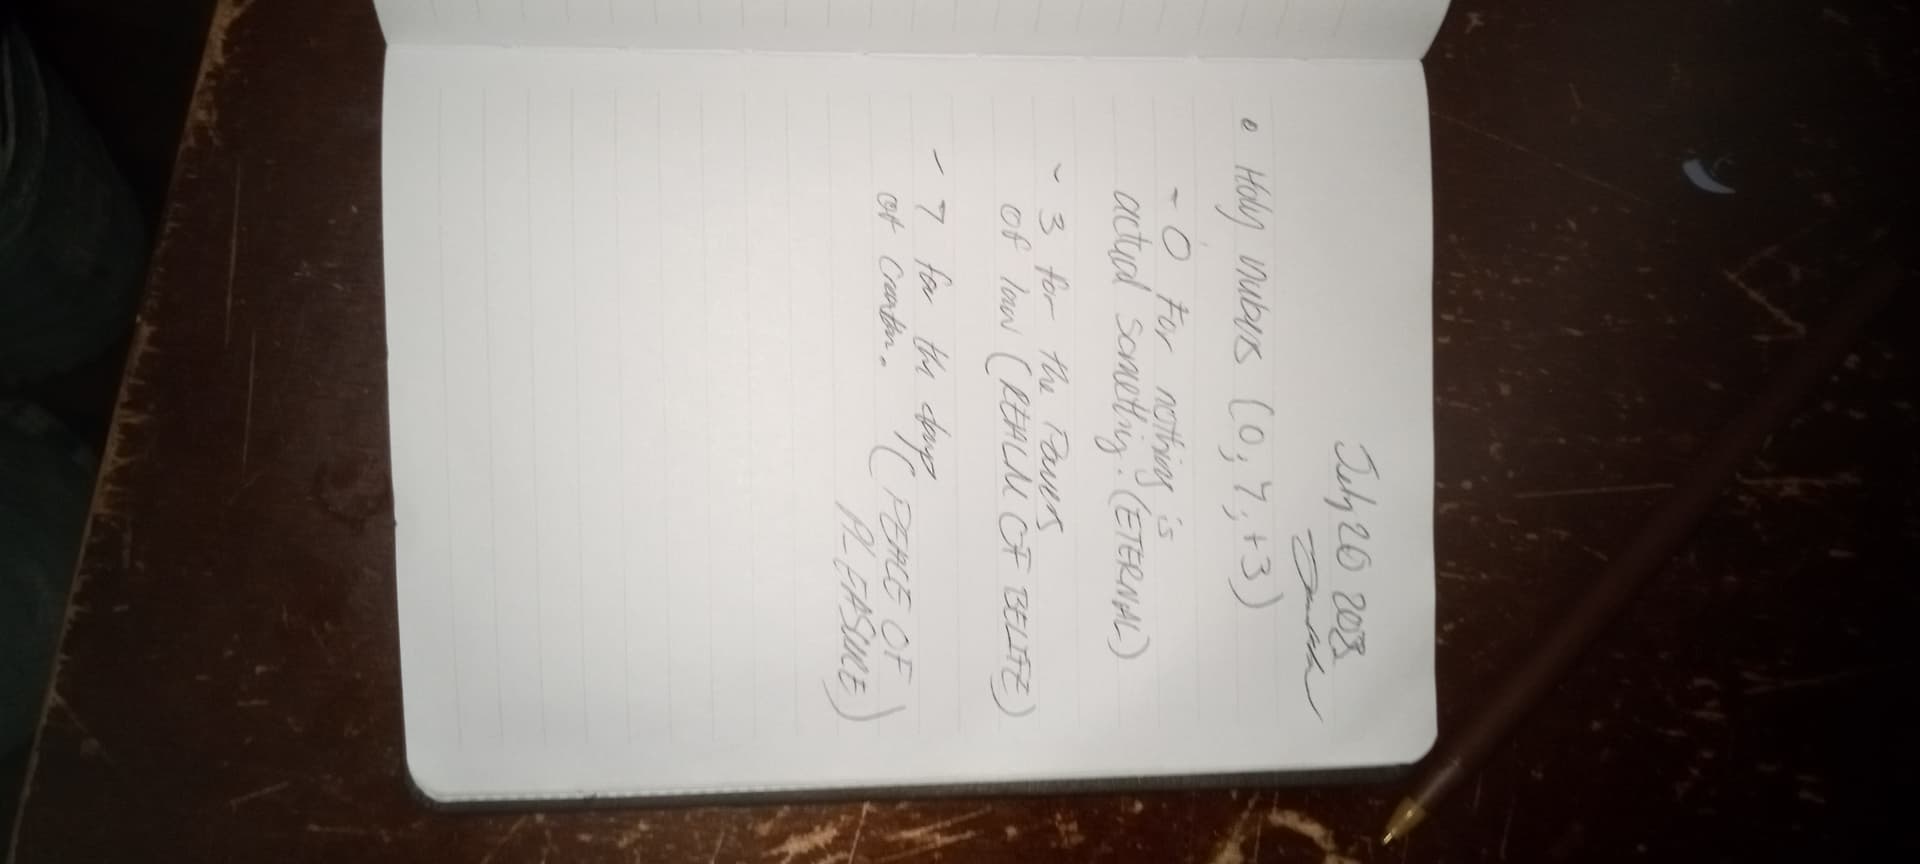 July 20 2023
• Holy nubers (0, 7, +3)
- 0 For nothing is
actual something. (ETERNAL)
- 3 for the Powers
of law (REALM OF BELIFE)
- 7 for the days
of creation. (PEACE OF
PLEASURE)